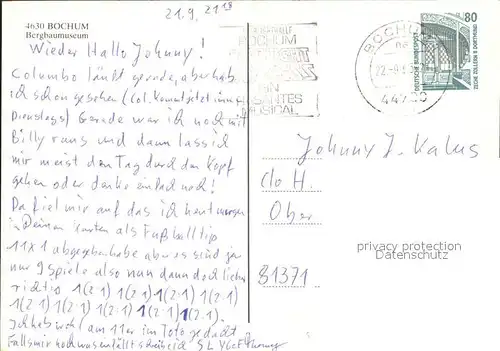 21.9. 21 18
4630 BOCHUM
Bergbaumuseum
Wieder Hallo Johnny!
Columbo läuft gerade, aber hab
ich schon gesehen (Col. kommt jetzt immer
Dienstags) Gerade war ich noch mit
Billy raus und dann lass ich
mir meist den Tag durch den Kopf
gehen oder danke einfach noch!
Da fiel mir auf das ich heut morgen
in Deinen Kasten als Fußballtip
11x1 abgegeben habe aber es sind ja
nur 9 Spiele also nun dann doch lieber
richtig 1(2:1) 1(2:1) 1(2:1) 1(2:1)
1(2:1) 1(2:1) 1(2:1) 1(2:1) 1(2:1).
Ich hab wohl am 11er im Toto gedacht
Falls mir noch was einfällt schreibe ich
BOCHUM
EIN
MUSICAL
BOCHUM
22.-9.
DEUTSCHE BUNDESPOST
80
ZECHE ZOLLERN II DORTMUND
Johnny J. Kalus
c/o H.
Ober
81371
privacy protection
Datenschutz